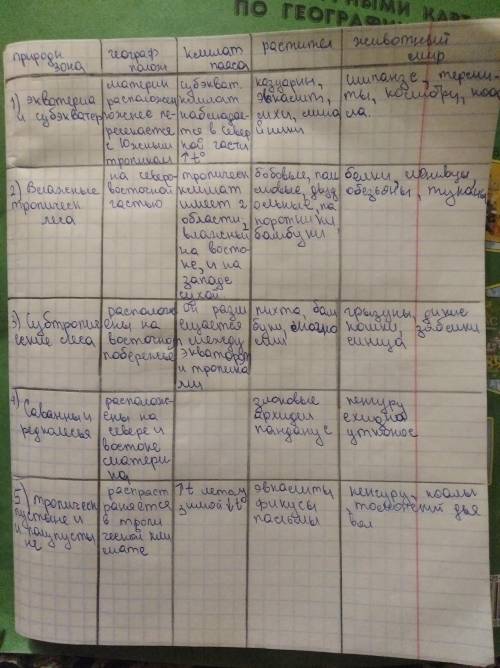 ПО ГЕОГРАФИ
природн зона
географ полож
климат пояса
растител
животный мир
1) экватериа и субэкватер
материк расположен южнее пересекается с Южным тропиком
субэкват. климат наблюдается в северной части ↑t°
казуарины,
шипанзе,
2) Влажные тропическ леса
на северо восточной частью
тропическ климат имеет 2 области, влажный на востоке, и на западе сухой
бобовые, папоротники бамбуки
белки, обезьяны, туканы
3) Субтропические леса
расположены на восточном побережье
он размещается между экватором и тропиками
пихта, бамбуки, магнолии
грызуны, дикие кошки, синица
4) Саванны и редколесья
расположены на севере и востоке материка
злаковые орхидеи панданус
кенгуру ехидна утконос
5) тропическ пустыне и полупустыне
распространяется в тропической климате
↑t летом, зимой
эвкалипты фикусы пасльоны
кенгуру, коалы, дьявол